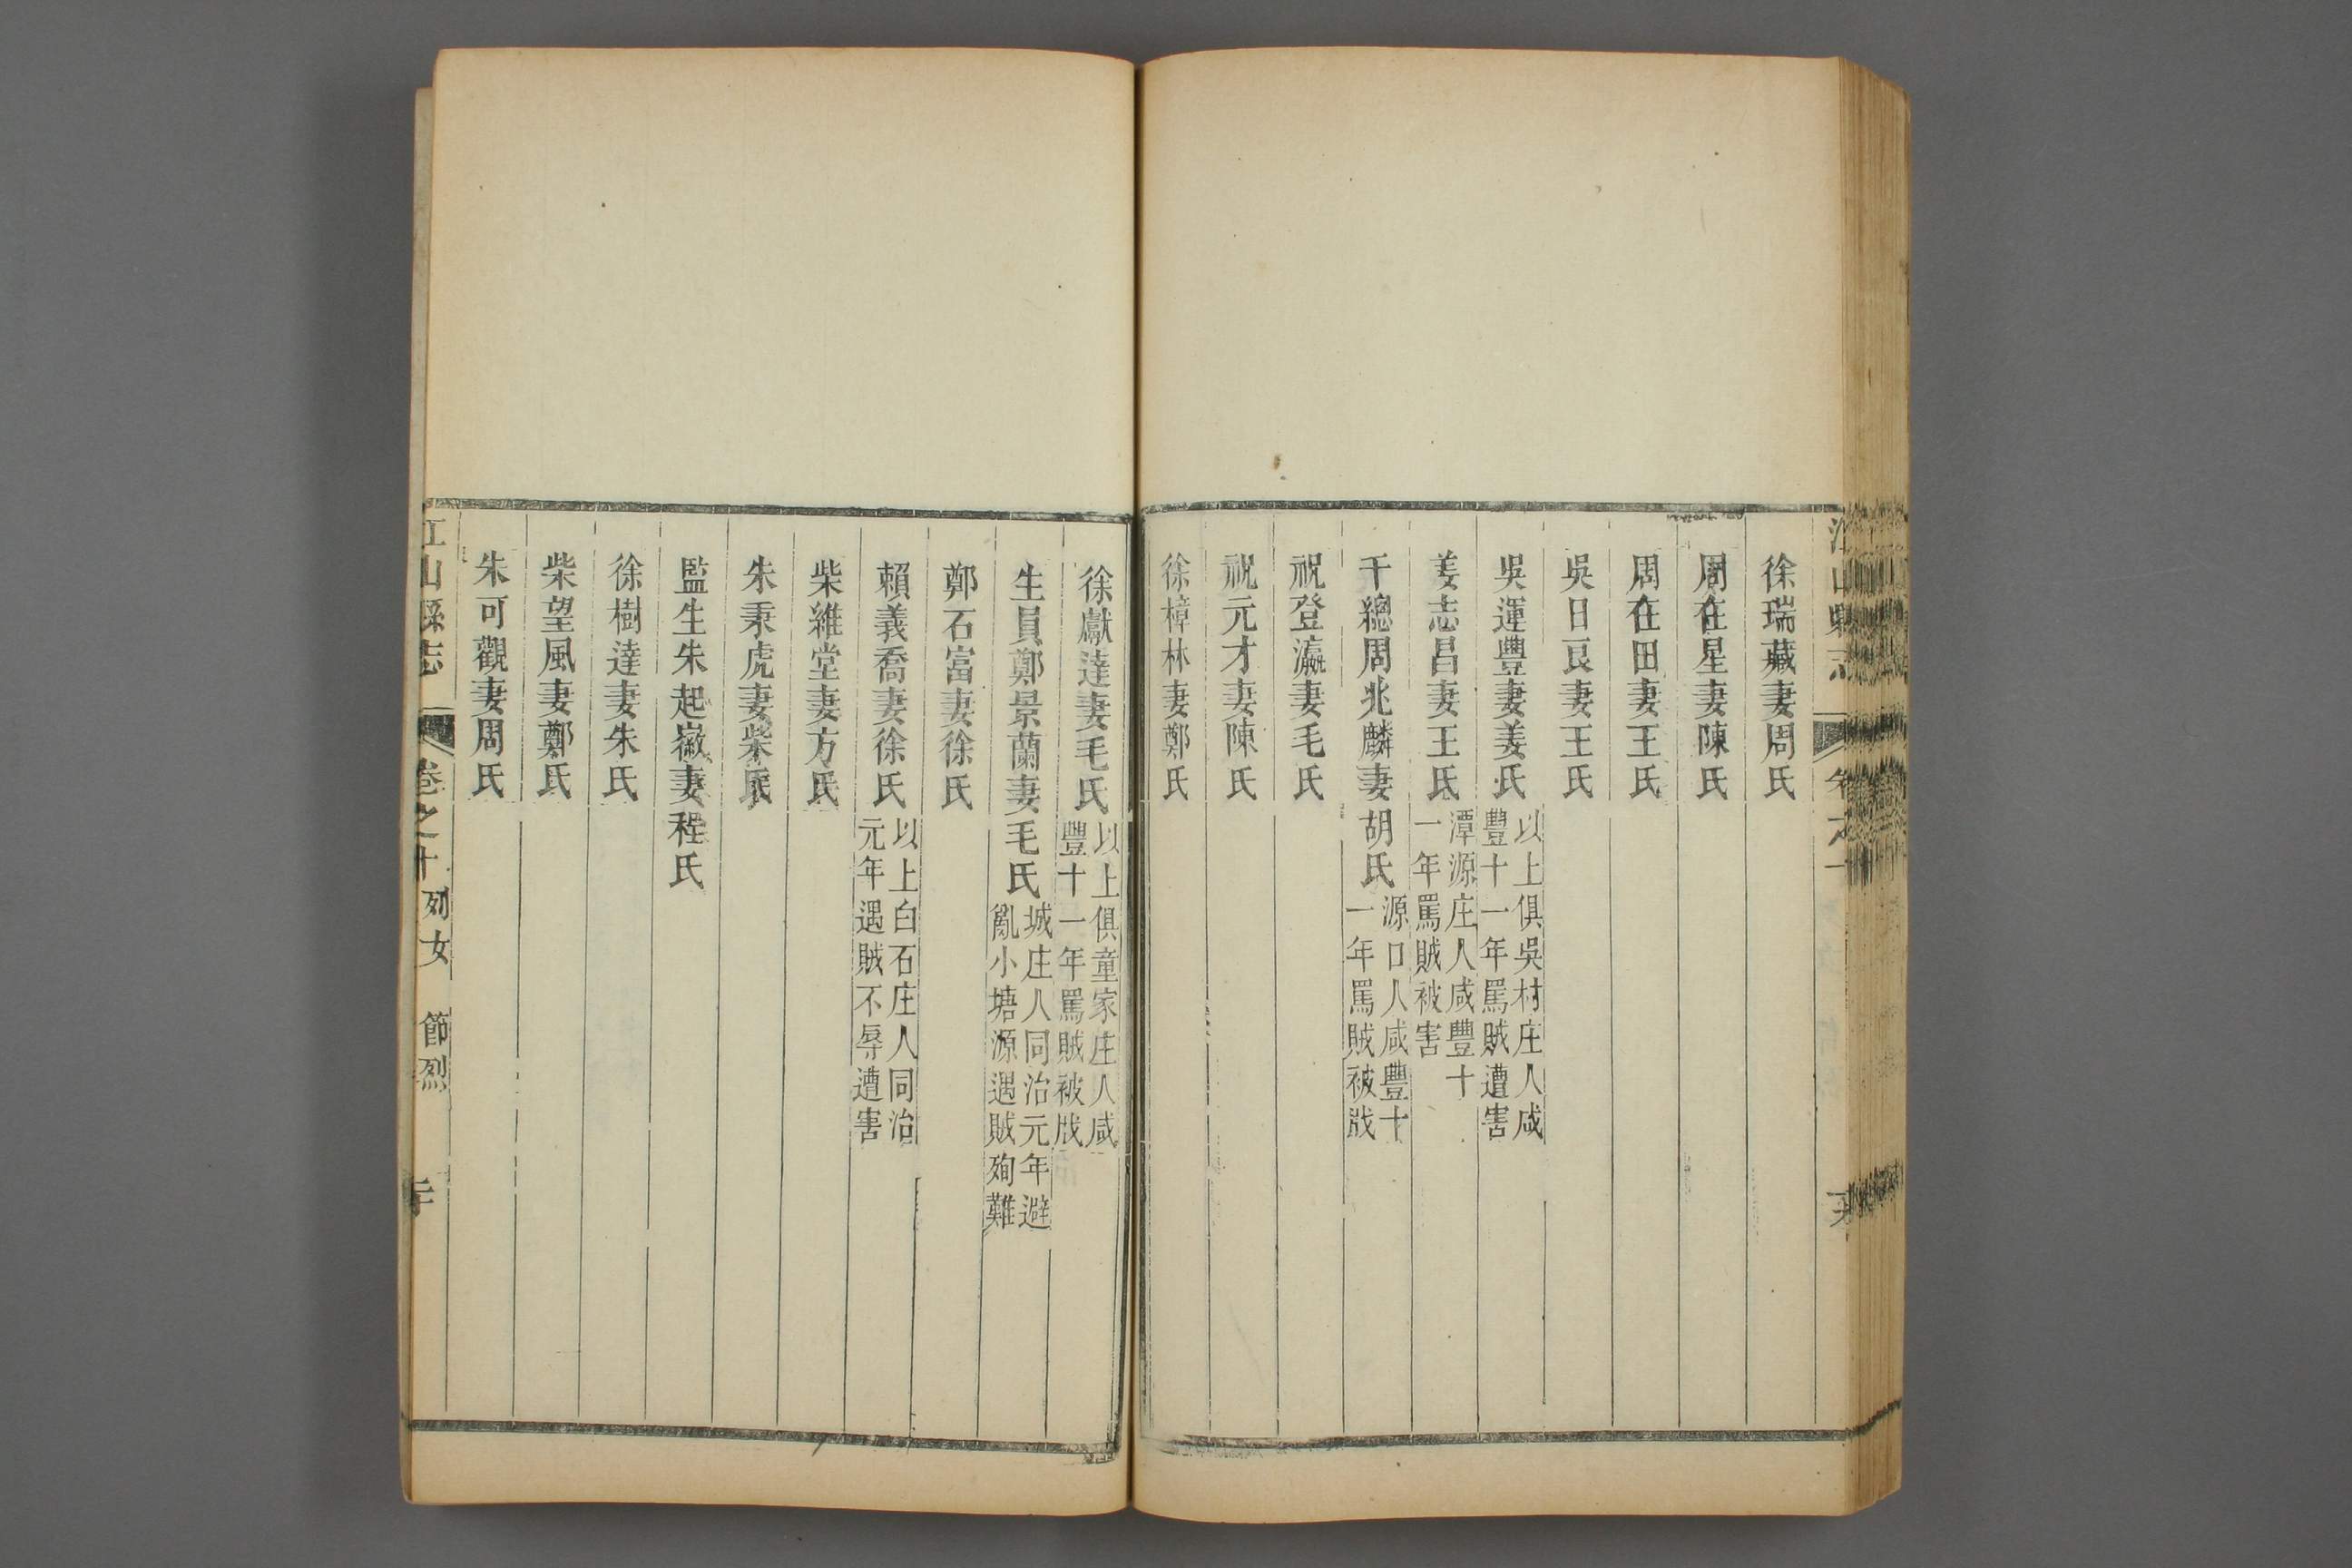 徐瑞藏妻周氏
周在星妻陳氏
周在田妻王氏
吳日良妻王氏
吳運豐妻姜氏以上俱吳村庄人咸豐十一年罵賊遭害
姜志昌妻王氏潭源庄人咸豐十一年罵賊被害
千總周兆麟妻胡氏源口人咸豐十一年罵賊被戕
祝登瀛妻毛氏
祝元才妻陳氏
徐樟林妻鄭氏
徐獻達妻毛氏以上俱童家庄人咸豐十一年罵賊被戕
生員鄭景蘭妻毛氏城庄人同治元年避亂小塘源遇賊殉難
鄭石富妻徐氏
賴義喬妻徐氏以上白石庄人同治元年遇賊不辱遭害
柴維堂妻方氏
朱秉虎妻柴氏
監生朱起嶽妻程氏
徐樹達妻朱氏
柴望風妻鄭氏
朱可觀妻周氏
江山縣志 卷之十 列女 節烈